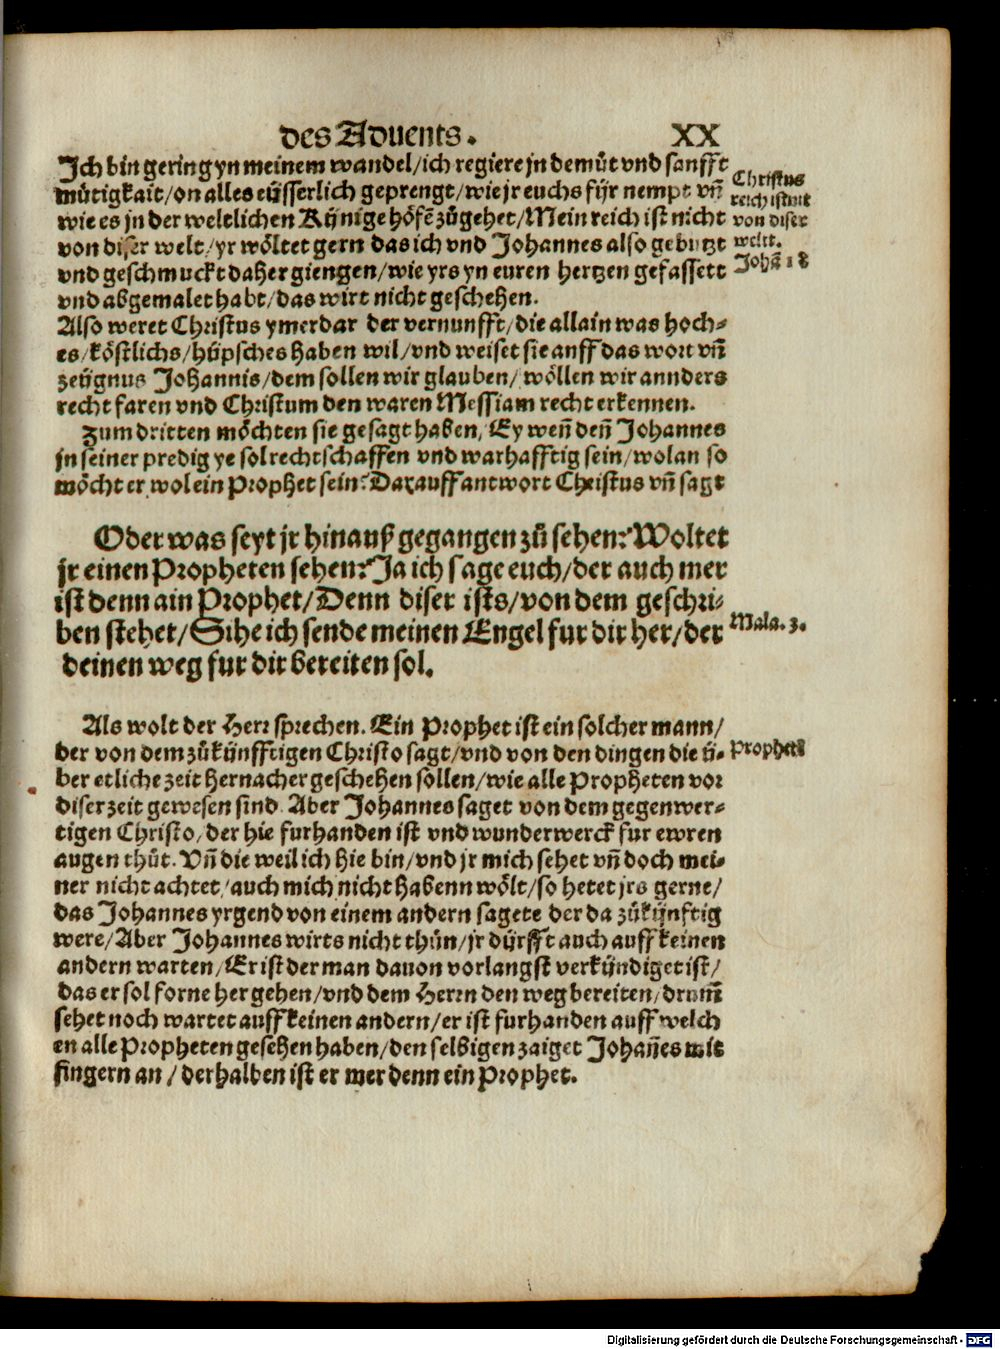 des Aduents. XX
Ich bin gering yn meinem wandel/ich regiere jn demůt vnd sanfft
můtigkait/on alles eüsserlich geprengt/wie jr euchs für nempt vñ
wie es jn der weltlichen Künige höfẽ zůgehet/Mein reich ist nicht
von diser welt/yr wöltet gern das ich vnd Johannes also gebutzt
vnd geschmuckt daher giengen/wie yrs yn euren hertzen gefassett
vnd abgemalet habt/das wirt nicht geschehen.
Christus
reich ist nit
von diser
weltt.
Johã. 18
Also weret Christus ymerdar der vernunfft/die allain was hoch⸗
es/köstlichs/hüpsches haben wil/vnd weiset sie auff das wort vñ
zeügnus Johannis/dem sollen wir glauben/wöllen wir annders
recht faren vnd Christum den waren Messiam recht erkennen.
Zum dritten möchten sie gesagt haben/Ey weñ deñ Johannes
jn seiner predig ye sol rechtschaffen vnd warhafftig sein/wolan so
möcht er wol ein Prophet sein? Darauff antwort Christus vñ sagt
Oder was seyt jr hinauß gegangen zů sehen? Woltet
jr einen Propheten sehen? Ja ich sage euch/der auch mer
ist denn ain Prophet/Denn diser ists/von dem geschri⸗
ben stehet/Sihe ich sende meinen Engel fur dir her/der
deinen weg fur dir bereiten sol.
Mala. 3.
Als wolt der Herr sprechen. Ein Prophet ist ein solcher mann/
der von dem zůkünfftigen Christo sagt/vnd von den dingen die ü⸗
ber etliche zeit hernacher geschehen sollen/wie alle Propheten vor
diser zeit gewesen sind. Aber Johannes saget von dem gegenwer⸗
tigen Christo/der hie furhanden ist vnd wunderwerck fur ewren
augen thůt. Vñ die weil ich hie bin/vnd jr mich sehet vñ doch mei⸗
ner nicht achtet/auch mich nicht habenn wölt/so hetet jrs gerne/
das Johannes yrgend von einem andern sagete der da zůkünftig
were/Aber Johannes wirts nicht thůn/jr dürfft auch auff keinen
andern warten/Er ist der man dauon vorlangst verkündiget ist/
das er sol forne her gehen/vnd dem Herrn den weg bereiten/drum̃
sehet noch wartet auff keinen andern/er ist furhanden auff welch
en alle Propheten gesehen haben/den selbigen zaiget Johañes mit
fingern an/derhalben ist er mer denn ein Prophet.
Prophett
Digitalisierung gefördert durch die Deutsche Forschungsgemeinschaft - DFG